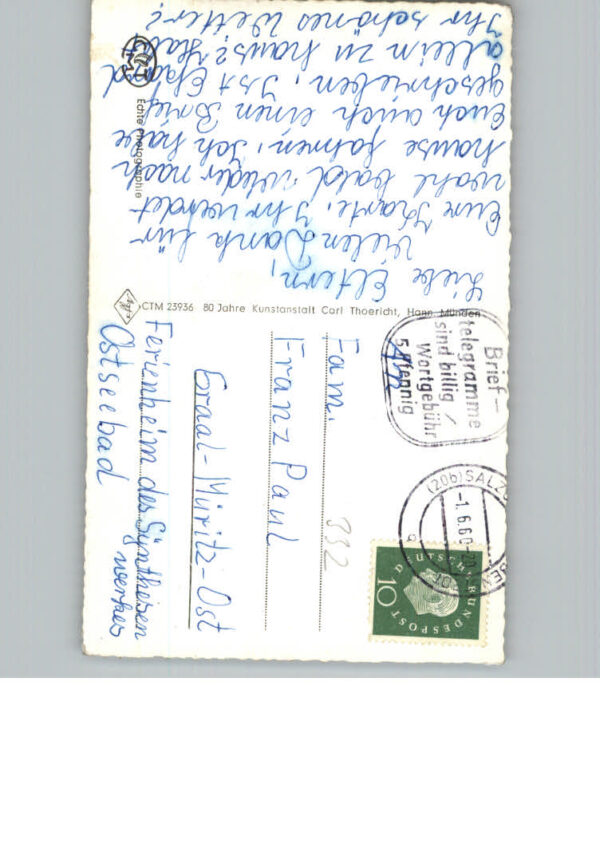 Liebe Eltern,
Vielen Dank für
Eure Karte. Ihr werdet
wohl bald wieder nach
Hause fahren. Ich habe
Euch auch einen Brief
geschrieben. Ist
allein zu Haus? Habt
Ihr schönes Wetter?
Echte Photographie
CTM 23936 80 Jahre Kunstanstalt Carl Thoericht, Hann. Münden
Brief-
telegramme
sind billig /
Wortgebühr
5 Pfennig
(20b) SALZG
-1.6.60
DEUTSCHE BUNDESPOST
10
An
Fam.
Franz Paul
Graal-Müritz-Ost
Ferienheim des Synthesen
werkes
Ostseebad
332